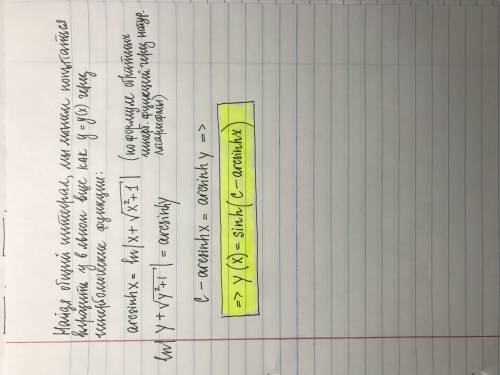 Найдя общий интеграл, мы можем попытаться
выразить y в явном виде как y = y(x) через
гиперболические функции:
arcsinhx = ln|x + √(x²+1)| (по формуле обратных
гиперб. функций через натур.
логарифмы)
ln|y + √(y²+1)| = arcsinhy
c - arcsinhx = arcsinhy =>
=> y(x) = sinh(c - arcsinhx)